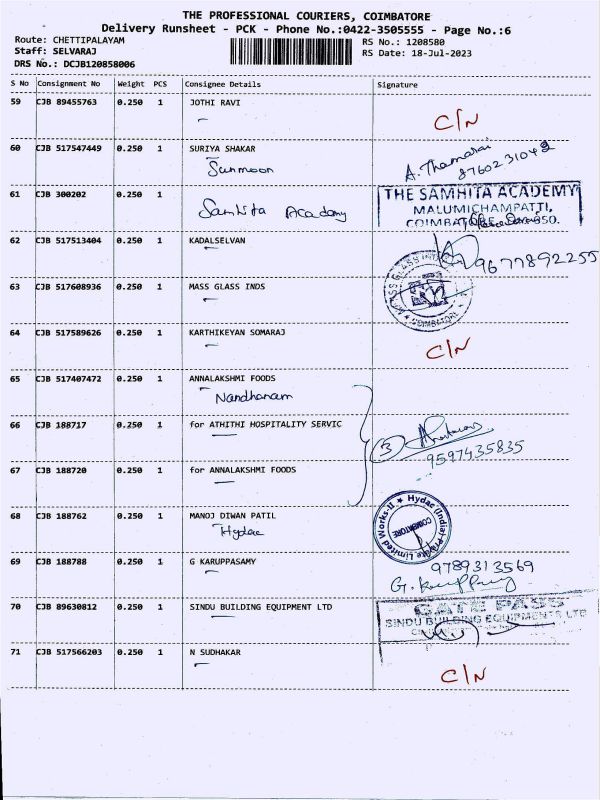 THE PROFESSIONAL COURIERS, COIMBATORE
Delivery Runsheet - PCK - Phone No.:0422-3505555 - Page No.:6
Route: CHETTIPALAYAM
Staff: SELVARAJ
DRS No.: DCJB120858006
RS No.: 1208580
RS Date: 18-Jul-2023
S No Consignment No Weight PCS Consignee Details Signature
59 CJB 89455763 0.250 1 JOTHI RAVI
C/N
60 CJB 517547449 0.250 1 SURIYA SHAKAR
Sunmoon
A. Thamarai
8760231042
61 CJB 300202 0.250 1
Samhita Academy
THE SAMHITA ACADEMY
MALUMICHAMPATTI,
62 CJB 517513404 0.250 1 KADALSELVAN
9677892255
63 CJB 517608936 0.250 1 MASS GLASS INDS
COIMBATORE
64 CJB 517589626 0.250 1 KARTHIKEYAN SOMARAJ
C/N
65 CJB 517407472 0.250 1 ANNALAKSHMI FOODS
Nandhanam
66 CJB 188717 0.250 1 for ATHITHI HOSPITALITY SERVIC
3
9597435835
67 CJB 188720 0.250 1 for ANNALAKSHMI FOODS
68 CJB 188762 0.250 1 MANOJ DIWAN PATIL
Hydac
Hydac (India) Private Limited Works-II
COIMBATORE
69 CJB 188788 0.250 1 G KARUPPASAMY
9789313569
70 CJB 89630812 0.250 1 SINDU BUILDING EQUIPMENT LTD
GATE PASS
SINDU BUILDING EQUIPMENTS LTD
71 CJB 517566203 0.250 1 N SUDHAKAR
C/N